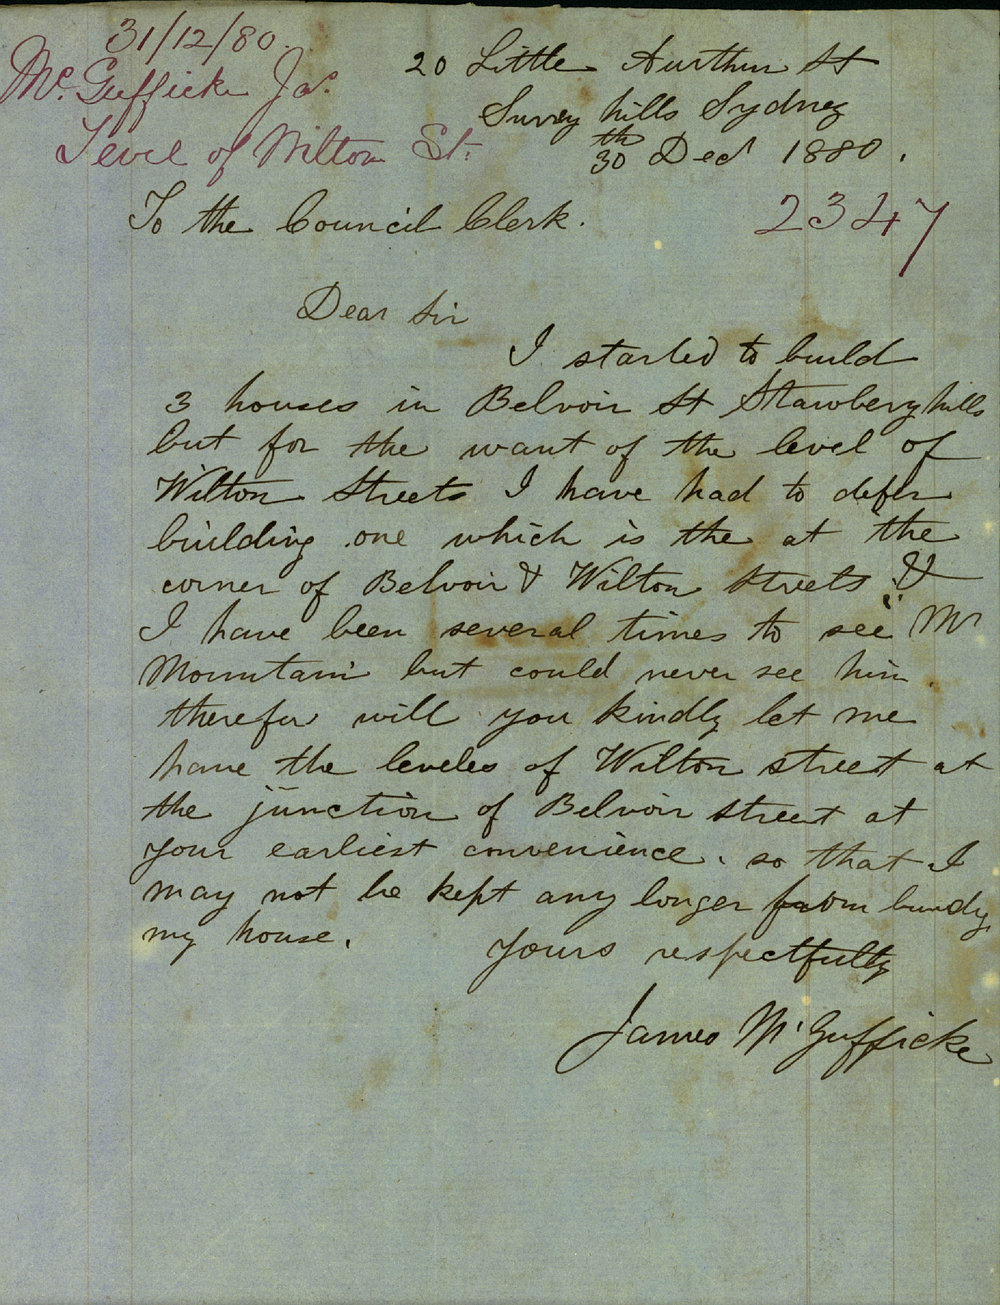 31/12/80.
McGufficke Jas.
Level of Wilton St.
20 Little Aurthur St
Surrey hills Sydney
30th Decr 1880.
To the Council Clerk.
2347
Dear Sir
I started to build
3 houses in Belvoir St Stawbery hills
but for the want of the level of
Wilton Streets I have had to defer
building one which is the at the
corner of Belvoir & Wilton Streets. &
I have been several times to see Mr
Mountain but could never see him
therefor will you kindly let me
have the leveles of Wilton street at
the junction of Belvoir street at
your earliest convenience. so that I
may not be kept any longer from
my house.
Yours respectfully
James McGufficke